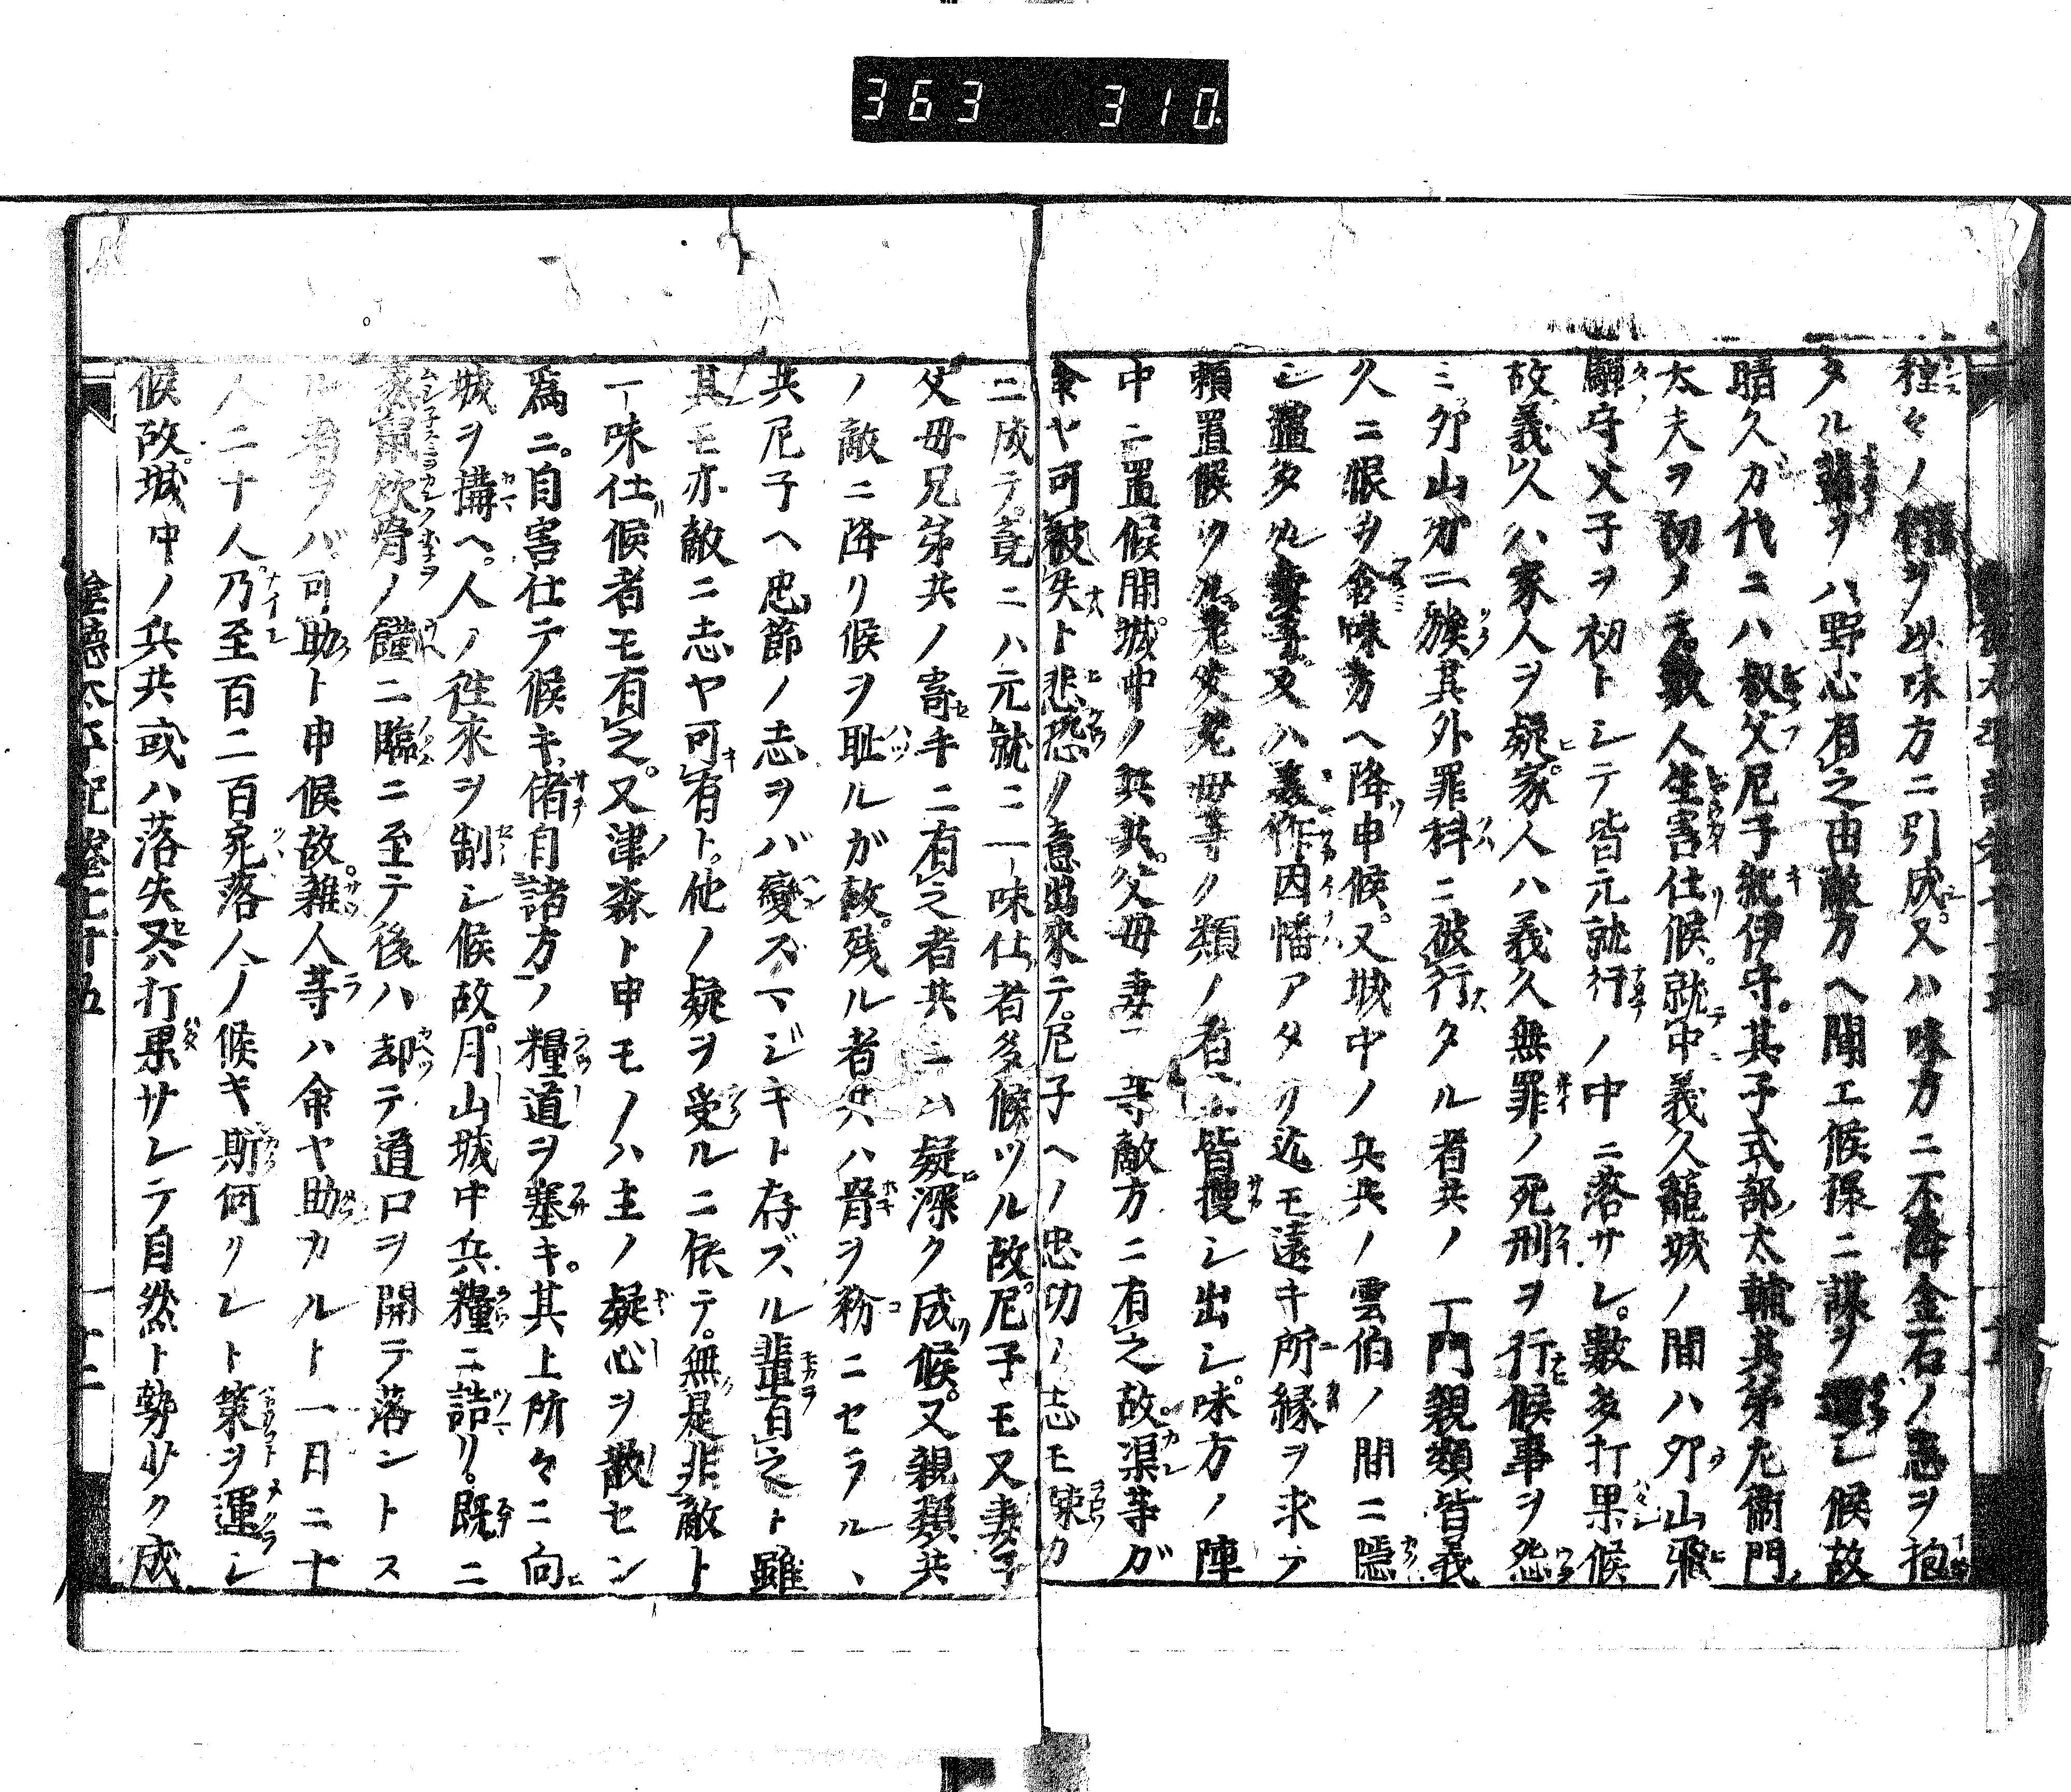 363 310.
種々ノ種ヲ以味方ニ引成。又ハ味方ニ不降金石ノ志ヲ抱
タル輩ヲハ野心有之由敵方ヘ聞エ候様ニ謀ヲシ候故
晴久カ代ニハ叔父尼子紀伊守。其子式部太輔其弟左衛門
太夫ヲ初メテ数人生害仕候。就中義久籠城ノ間ハ卯山飛
驒守父子ヲ初トシテ皆元就行ノ中ニ落サレ。數多打果候
故義久ハ家人ヲ疑。家人ハ義久無罪ノ死刑ヲ行候事ヲ怨
ミ卯山カ一族其外罪科ニ被行タル者共ノ一門親類皆義
久ニ恨ヲ含味方ヘ降申候。又城中ノ兵共ノ雲伯ノ間ニ隱
シ置タル妻子又ハ美作因幡アタリ迄モ遠キ所縁ヲ求テ
頼置候ツル老父老母等ノ類ノ者ヲ皆搜シ出シ。味方ノ陣
中ニ置候間。城中ノ兵共。父母妻子等敵方ニ有之故。渠等ガ
命ヤ可被失ト悲恐ノ意出來テ。尼子ヘノ忠功ノ志モ疎カ
ニ成テ。竟ニハ元就ニ一味仕者多候ツル故。尼子モ又妻子
父母兄弟共ノ寄キニ有之者共ニハ疑深ク成候。又親類共
ノ敵ニ降リ候ヲ耻ルガ故。残ル者共ハ骨ヲ粉ニセラルヽ
共尼子ヘ忠節ノ志ヲバ變スマジキト存ズル輩有之ト雖
其モ亦敵ニ志ヤ可有ト。他ノ疑ヲ受ルニ依テ。無是非敵ト
一味仕候者モ有之。又津森ト申モノハ主ノ疑心ヲ散セン
為ニ。自害仕テ候キ。偖自諸方ノ糧道ヲ塞キ。其上所々ニ向
城ヲ搆ヘ。人ノ往來ヲ制シ候故。月山城中兵糧ニ詰リ。既ニ
蒸鼠炊骨ノ饉ニ臨ニ至テ後ハ却テ道口ヲ開テ落シトス
ル者ヲバ可助ト申候故。雜人等ハ命ヤ助カルト一日ニ十
人二十人。乃至百二百宛落人ノ候キ斯何リレト策ヲ運シ
候故。城中ノ兵共或ハ落失又ハ打果サレテ自然ト勢少ク成
陰徳太平記巻七十五
十二